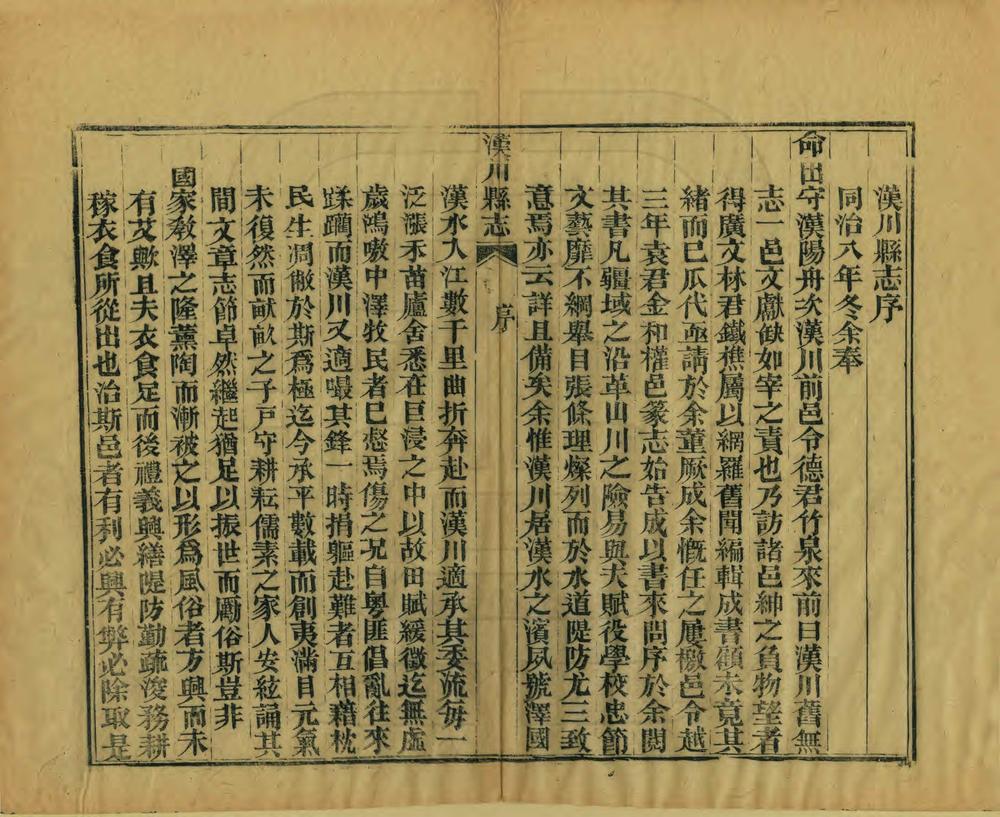 漢川縣志序
同治八年冬余奉
命出守漢陽舟次漢川前邑令德君竹泉來前曰漢川舊無
志一邑文獻缺如宰之責也乃訪諸邑紳之負物望者
得廣文林君鐵樵屬以網羅舊聞編輯成書顧未竟其
緒而已瓜代亟請於余董厥成余慨任之屢檄邑令越
三年袁君金和權邑篆志始告成以書來問序於余閱
其書凡疆域之沿革山川之險易與夫賦役學校忠節
文藝靡不綱舉目張條理燦列而於水道隄防尤三致
意焉亦云詳且備矣余惟漢川居漢水之濱夙號澤國
漢川縣志
序
漢水入江數千里曲折奔赴而漢川適承其委流每一
泛漲禾苗廬舍悉在巨浸之中以故田賦緩徵迄無虛
歲鴻嗷中澤牧民者已惄焉傷之况自粵匪倡亂往來
蹂躪而漢川又適嘬其鋒一時捐軀赴難者互相藉枕
民生凋敝於斯為極迄今承平數載而創夷滿目元氣
未復然而畝畝之子戸守耕耘儒素之家人安絃誦其
間文章志節卓然繼起猶足以振世而勵俗斯豈非
國家敎澤之隆薰陶而漸被之以形為風俗者方興而未
有艾歟且夫衣食足而後禮義興繕隄防勤疏浚務耕
稼衣食所從出也治斯邑者有利必興有弊必除取是